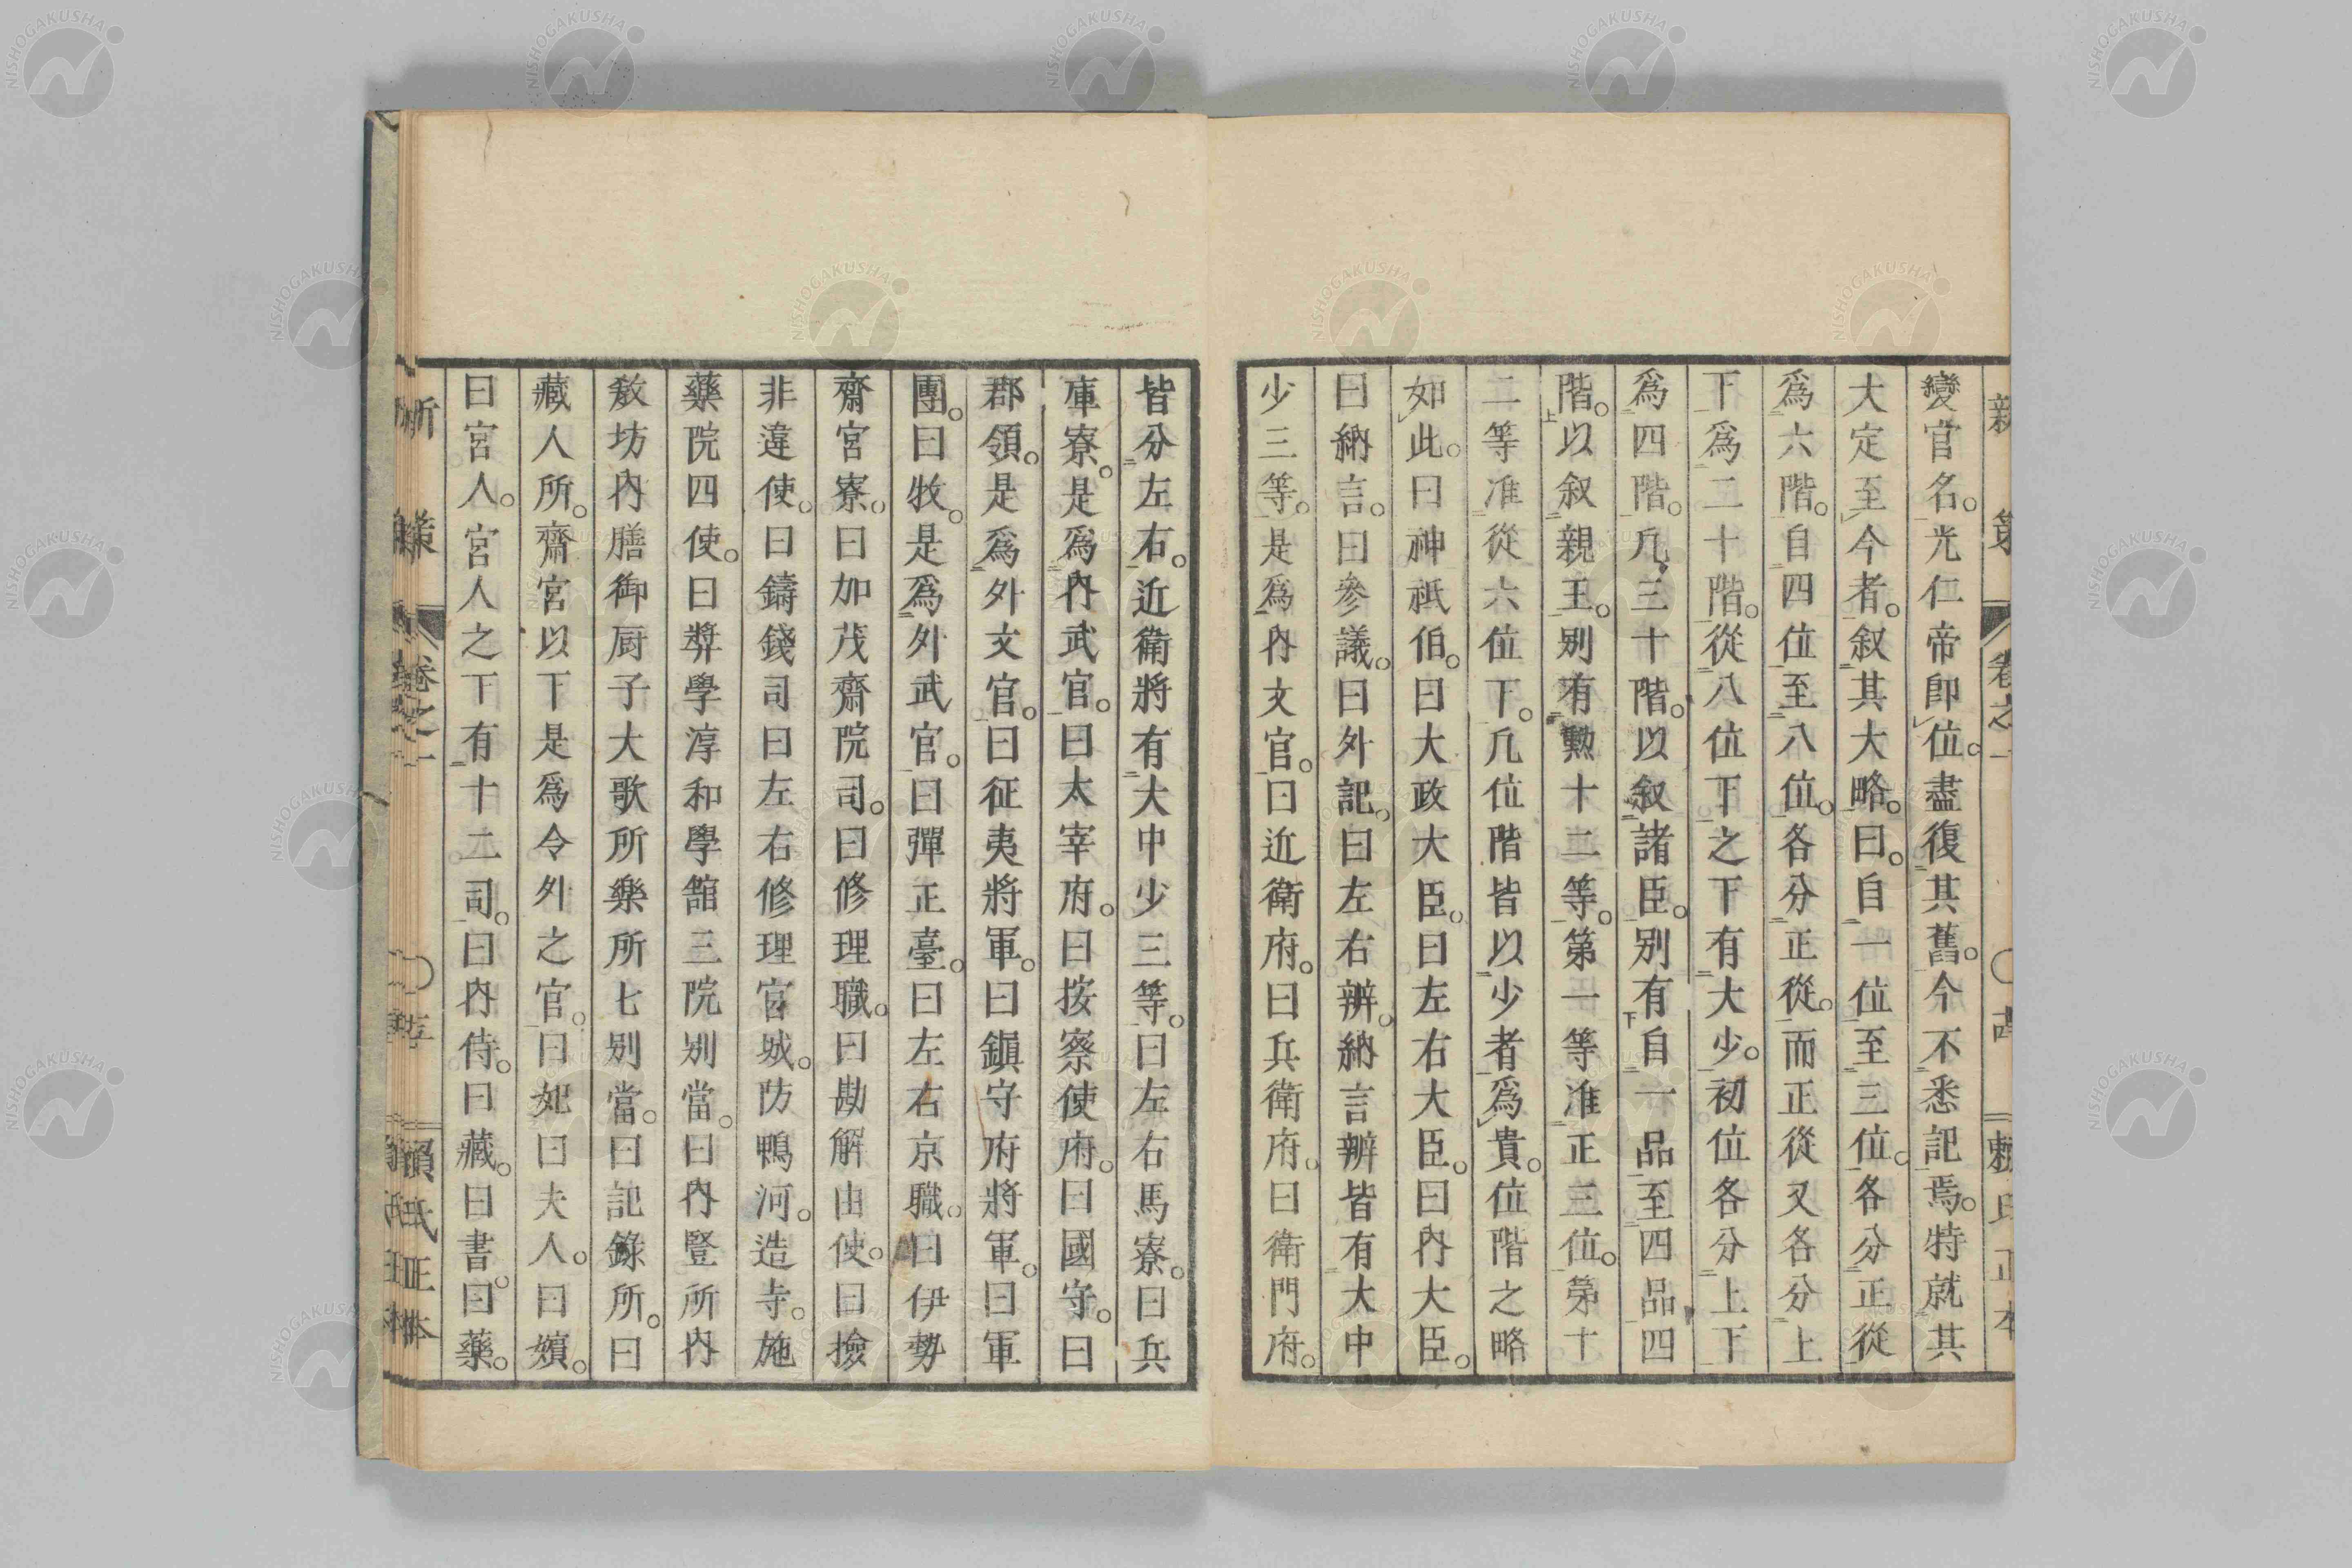 變官名。光仁帝卽位。盡復其舊。今不悉記焉。特就其
大定至今者。叙其大略。曰。自一位至三位。各分正從
爲六階。自四位至八位。各分正從。而正從又各分上
下爲二十階。從八位下之下有大少。初位各分上下
爲四階。凡三十階。以叙諸臣。別有自一品至四品四
階。以叙親王。別有勲十二等。第一等准正三位。第十
二等准從六位下。凡位階皆以少者爲貴。位階之略
如此。曰神祇伯。曰大政大臣。曰左右大臣。曰內大臣。
曰納言。曰參議。曰外記。曰左右辨。納言辨皆有大中
少三等。是爲內文官。曰近衛府。曰兵衛府。曰衛門府。
皆分左右。近衛將有大中少三等。曰左右馬寮。曰兵
庫寮。是爲內武官。曰太宰府。曰按察使府。曰國守。曰
郡領。是爲外文官。曰征夷將軍。曰鎭守府將軍。曰軍
團。曰牧。是爲外武官。曰彈正臺。曰左右京職。曰伊勢
齋宮寮。曰加茂齋院司。曰修理職。曰勘解由使。曰撿
非違使。曰鑄錢司。曰左右修理宮城。防鴨河。造寺。施
藥院四使。曰奬學淳和學館三院別當。曰內豎所內
敎坊內膳御厨子大歌所樂所七別當。曰記錄所。曰
藏人所。齋宮以下是爲令外之官。曰妃曰夫人。曰嬪。
曰宮人。宮人之下有十二司。曰內侍。曰藏。曰書。曰藥。
新策
卷之一
賴氏正本
NISHOGAKUSHA